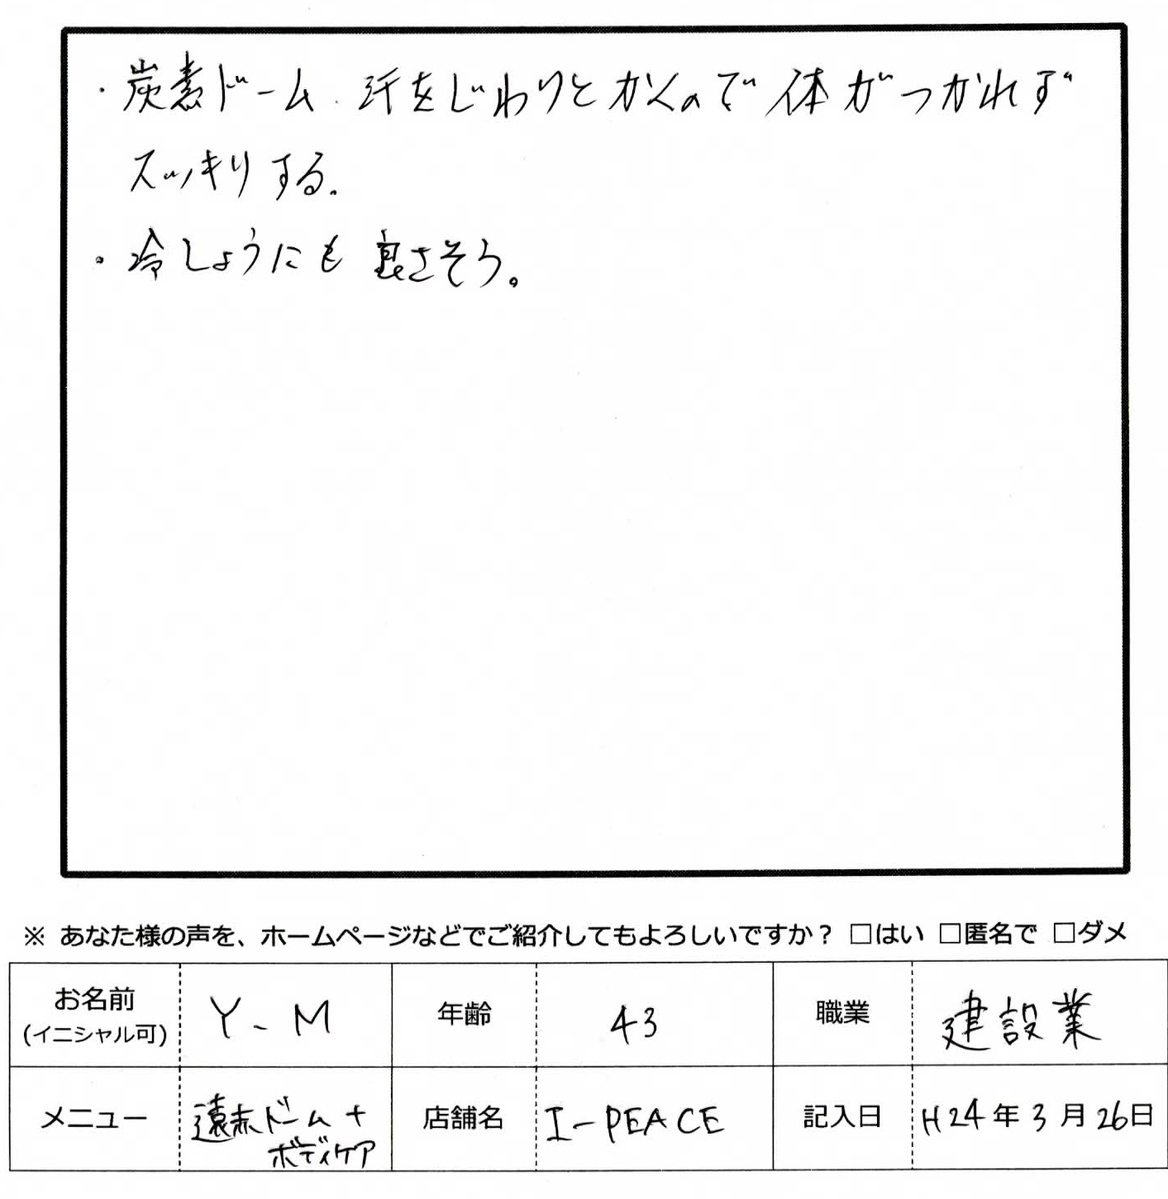 ・炭素ドーム 汗をじわりとかくので体がつかれず
スッキリする.
・冷しょうにも良さそう。
※ あなた様の声を、ホームページなどでご紹介してもよろしいですか？ □はい □匿名で □ダメ
お名前
(イニシャル可)
Y-M
年齢
43
職業
建設業
メニュー
遠赤ドーム＋
ボディケア
店舗名
I-PEACE
記入日
H24年3月26日